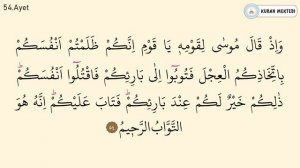 54.Ayet
KURAN MEKTEBİ
وَاِذْ قَالَ مُوسٰى لِقَوْمِه۪ يَا قَوْمِ اِنَّكُمْ ظَلَمْتُمْ اَنْفُسَكُمْ
بِاتِّخَاذِكُمُ الْعِجْلَ فَتُوبُٓوا اِلٰى بَارِئِكُمْ فَاقْتُلُٓوا اَنْفُسَكُمْۜ
ذٰلِكُمْ خَيْرٌ لَكُمْ عِنْدَ بَارِئِكُمْۜ فَتَابَ عَلَيْكُمْۜ اِنَّهُ هُوَ
التَّوَّابُ الرَّح۪يمُ ﴿٥٤﴾